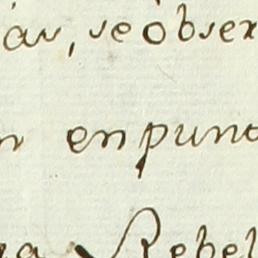 iar, se obser
n en punto
na Rebel